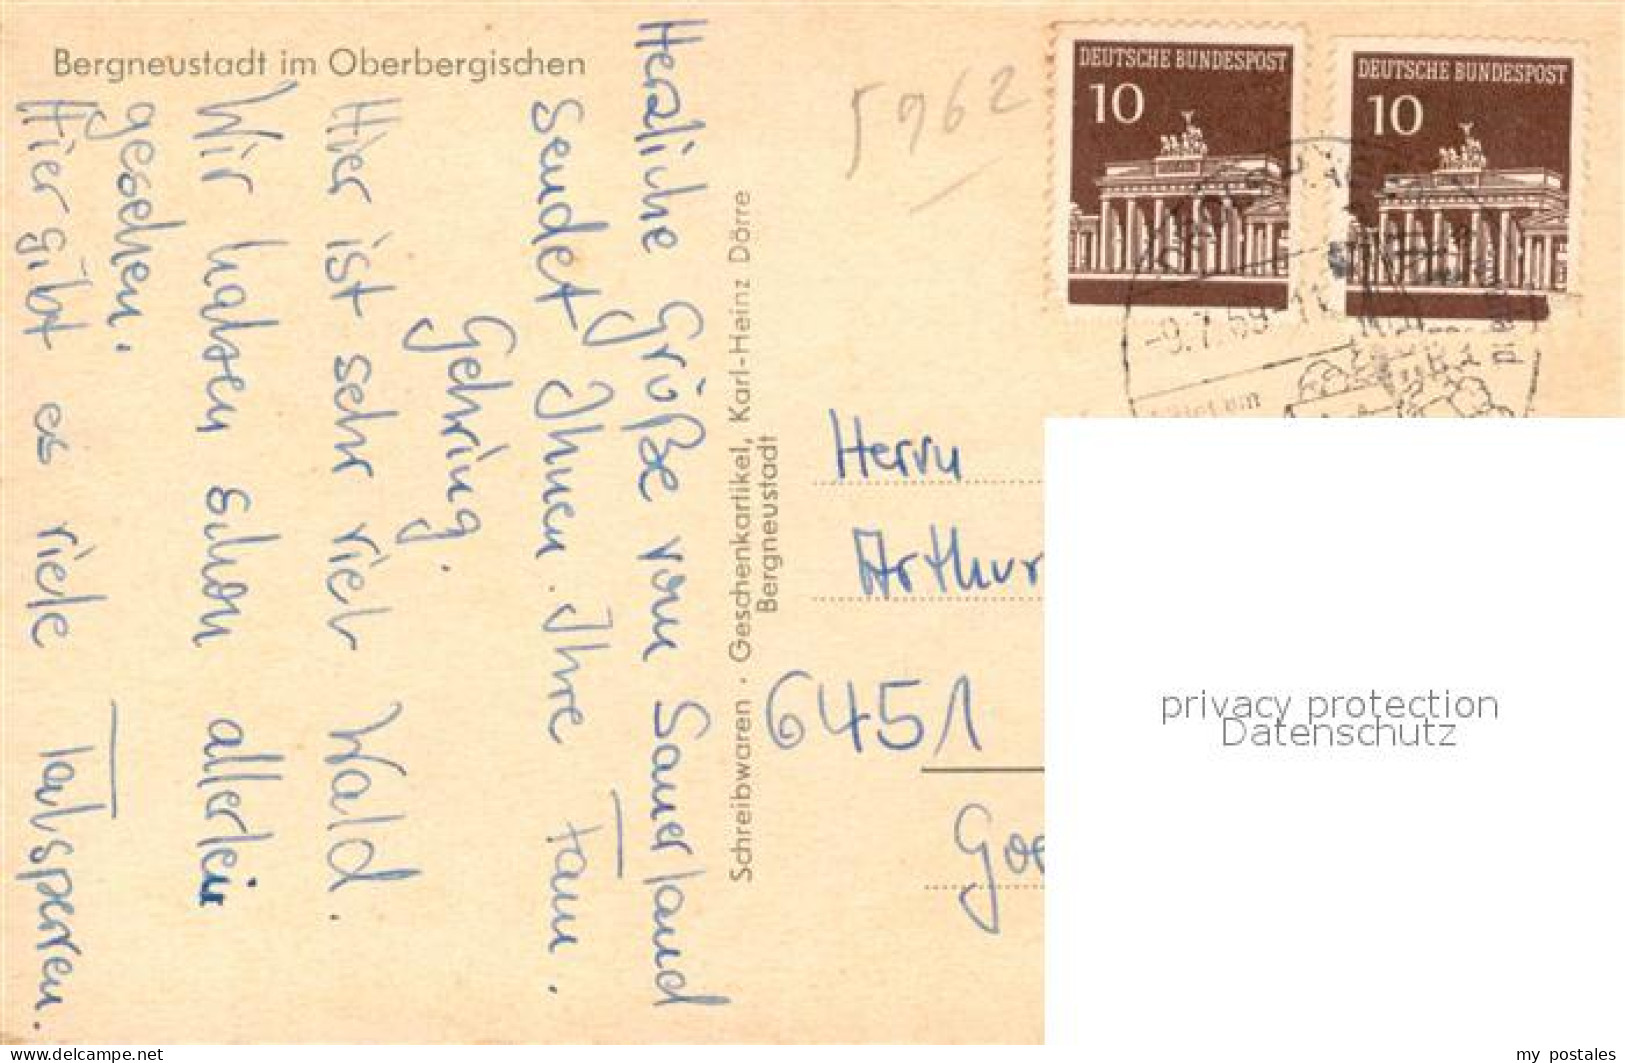 Bergneustadt im Oberbergischen
Herzliche Grüße vom Sauerland
sendet Ihnen. Ihre Fam.
Gehring.
Hier ist sehr viel Wald.
Wir haben schon allerlei
gesehen.
Hier gibt es viele Talsperren.
Schreibwaren · Geschenkartikel, Karl-Heinz Dörre
Bergneustadt
5962
DEUTSCHE BUNDESPOST
10
DEUTSCHE BUNDESPOST
10
-9.7.69-11
Herrn
Arthur
6451
privacy protection
Datenschutz
my_postales
delcampe.net